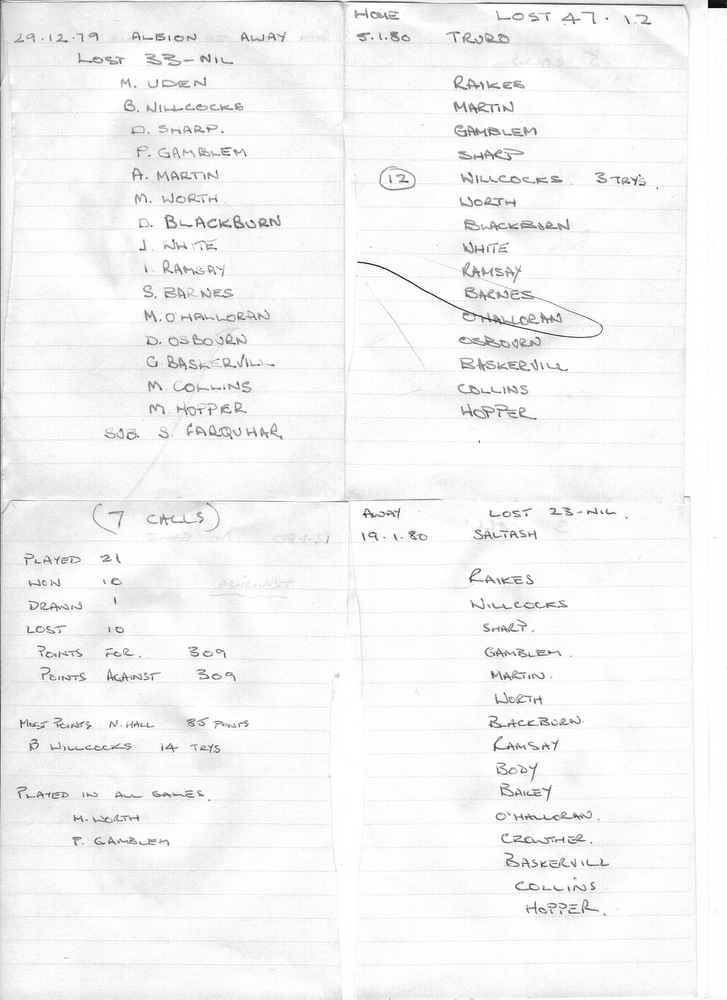 29.12.79 ALBION AWAY
LOST 33-NIL
M. UDEN
B. WILLCOCKS
D. SHARP.
P. GAMBLEM
A. MARTIN
M. WORTH
D. BLACKBURN
J. WHITE
I. RAMSAY
S. BARNES
M. O'HALLORAN
D. OSBOURN
G. BASKERVILL
M. COLLINS
M. HOPPER
SUB. S. FARQUHAR
HOME LOST 47.12
5.1.80 TRURO
RAIKES
MARTIN
GAMBLEM
SHARP
12 WILLCOCKS. 3 TRY'S.
WORTH
BLACKBURN
WHITE
RAMSAY
BARNES
O'HALLORAN
OSBOURN
BASKERVILL
COLLINS
HOPPER
(7 CALLS)
PLAYED 21
WON 10
DRAWN 1
LOST 10
POINTS FOR. 309
POINTS AGAINST 309
MOST POINTS N. HALL 85 POINTS
B WILLCOCKS 14 TRYS
PLAYED IN ALL GAMES.
M. WORTH
P. GAMBLEM
AWAY LOST 23-NIL.
19.1.80 SALTASH
RAIKES
WILLCOCKS
SHARP.
GAMBLEM.
MARTIN.
WORTH
BLACKBURN.
RAMSAY
BODY
BAILEY
O'HALLORAN.
CROWTHER.
BASKERVILL
COLLINS
HOPPER.